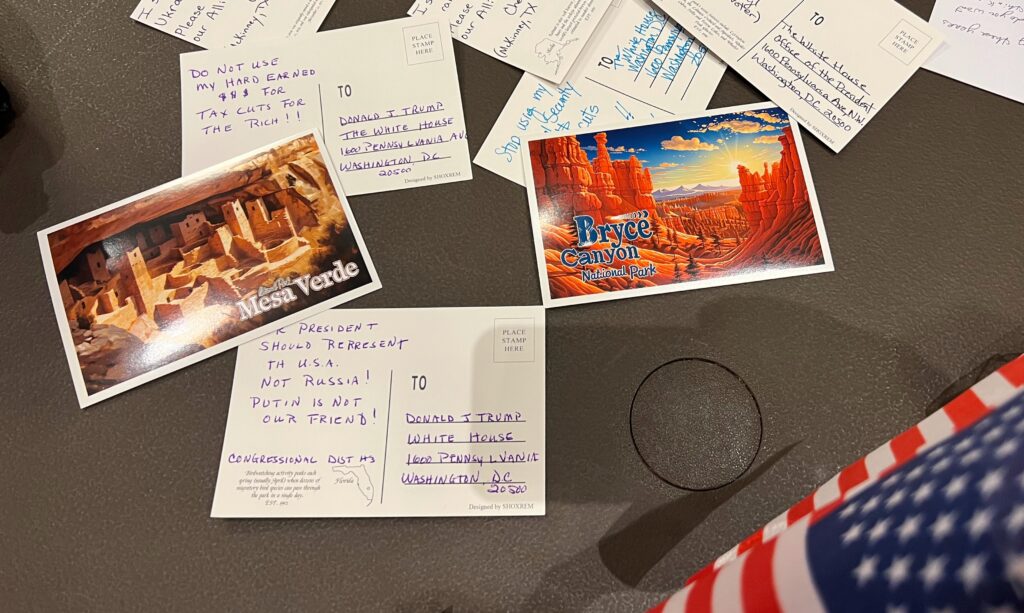 Please
our Alli
McKinney, TX
Please
our Alli
(McKinney, TX
TO
The White House
Washington DC
1600
Washington
TO
The White House
Office of the President
1600 Pennsylvania Ave N.W.
Washington, D.C. 20500
Designed by SHOXREM
PLACE
STAMP
HERE
DO NOT USE
MY HARD EARNED
$$$ FOR
TAX CUTS FOR
THE RICH!!
PLACE
STAMP
HERE
TO
DONALD J. TRUMP
THE WHITE HOUSE
1600 PENNSYLVANIA AVE
WASHINGTON, DC
20500
Designed by SHOXREM
Stop using my
Security
cuts
!!
Mesa Verde
Bryce
Canyon
National Park
PRESIDENT
SHOULD REPRESENT
TH U.S.A.
NOT RUSSIA!
PUTIN IS NOT
OUR FRIEND!
CONGRESSIONAL DIST #3
Birdwatching activity peaks each
spring (usually April) when dozens of
migratory bird species can pass through
the park in a single day.
Florida
PLACE
STAMP
HERE
TO
DONALD J TRUMP
WHITE HOUSE
1600 PENNSYLVANIA
WASHINGTON, DC
20500
Designed by SHOXREM